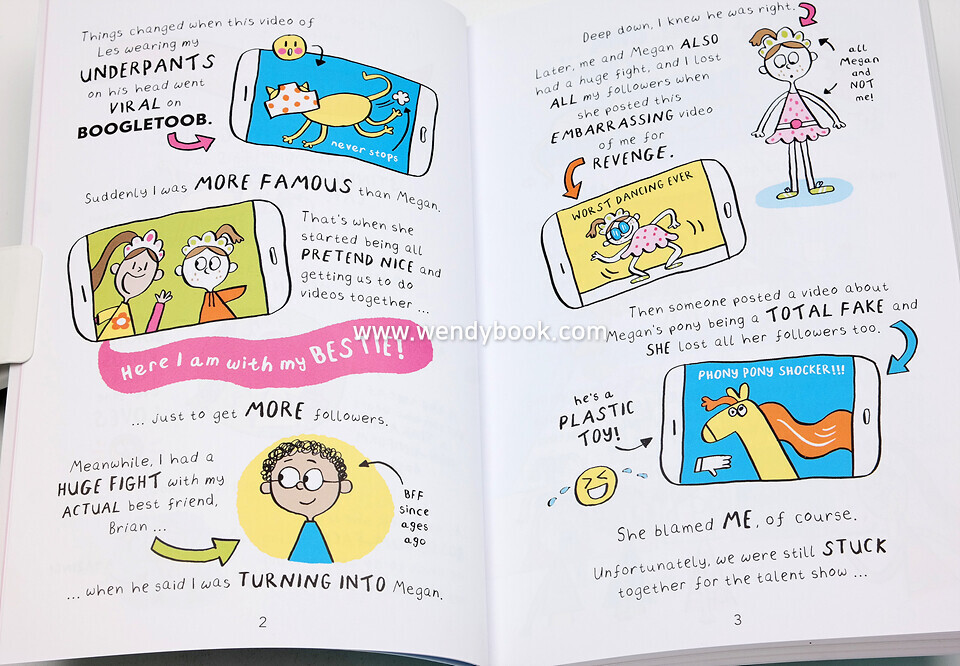 Things changed when this video of
Les wearing my
UNDERPANTS
on his head went
VIRAL on
BOOGLETOOB.
never stops
Suddenly I was MORE FAMOUS than Megan.
That's when she
started being all
PRETEND NICE and
getting us to do
videos together ...
Here I am with my BESTIE!
... just to get MORE followers.
Meanwhile, I had a
HUGE FIGHT with my
ACTUAL best friend,
Brian ...
BFF
since
ages
ago
... when he said I was TURNING INTO Megan.
2
Deep down, I knew he was right.
Later, me and Megan ALSO
had a huge fight, and I lost
ALL my followers when
she posted this
EMBARRASSING video
of me for
REVENGE.
all
Megan
and
NOT
me!
WORST DANCING EVER
Then someone posted a video about
Megan's pony being a TOTAL FAKE and
SHE lost all her followers too.
PHONY PONY SHOCKER!!!
he's a
PLASTIC
TOY!
She blamed ME, of course.
Unfortunately, we were still STUCK
together for the talent show ...
3
www.wendybook.com